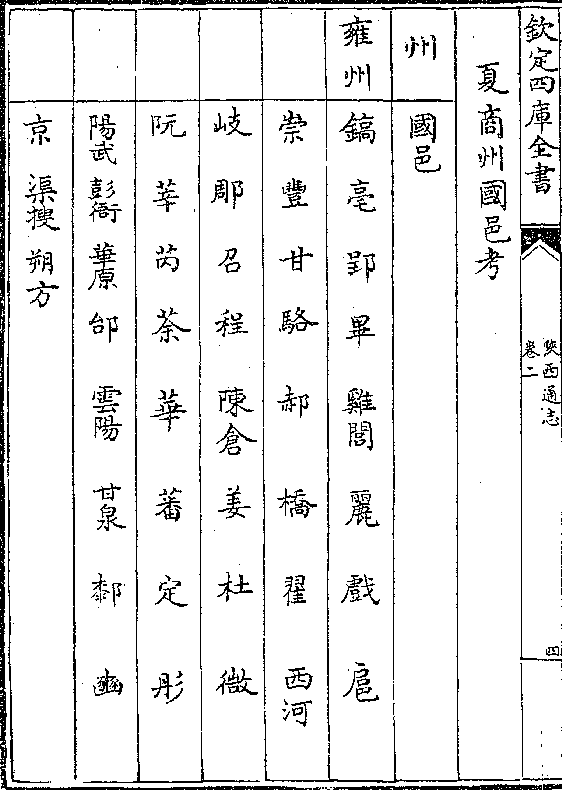 欽定四庫全書
陝西通志
卷二
四
夏商州國邑考
州 國邑
雍州 鎬 亳 郢 畢 雞閭 麗 戲 扈
崇 豐 甘 駱 郝 橋 翟 西河
岐 郮 召 程 陳倉 姜 杜 微
阮 莘 芮 荼 華 蕃 定 彤
陽武 彭衙 華原 邰 雲陽 甘泉 豳
京 渠搜 朔方